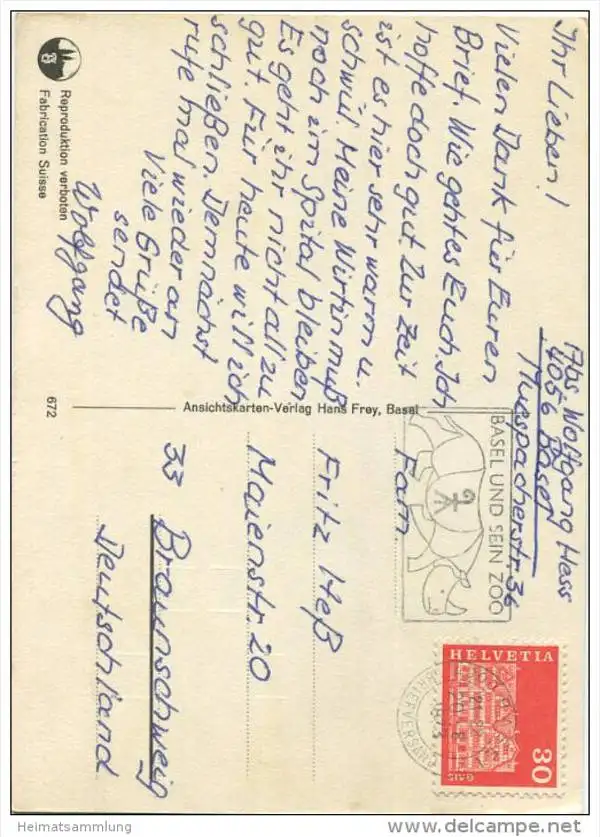 Ihr Lieben!
Vielen Dank für Euren
Brief. Wie geht es Euch. Ich
hoffe doch gut. Zur Zeit
ist es hier sehr warm u.
schwül. Meine Wirtin muß
noch im Spital bleiben
Es geht ihr nicht all zu
gut. Für heute will ich
schließen. Demnächst
rufe mal wieder an
Viele Grüße
sendet
Wolfgang
Reproduktion verboten
Fabrication Suisse
672
Ansichtskarten-Verlag Hans Frey, Basel
Abs. Wolfgang Hess
4056 Basel
36
BASEL UND SEIN ZOO
HELVETIA
30
GAIS
BRIEFVERSAND
Fam
Fritz Heß
Maienstr. 20
33 Braunschweig
Deutschland
Heimatsammlung
www.delcampe.net